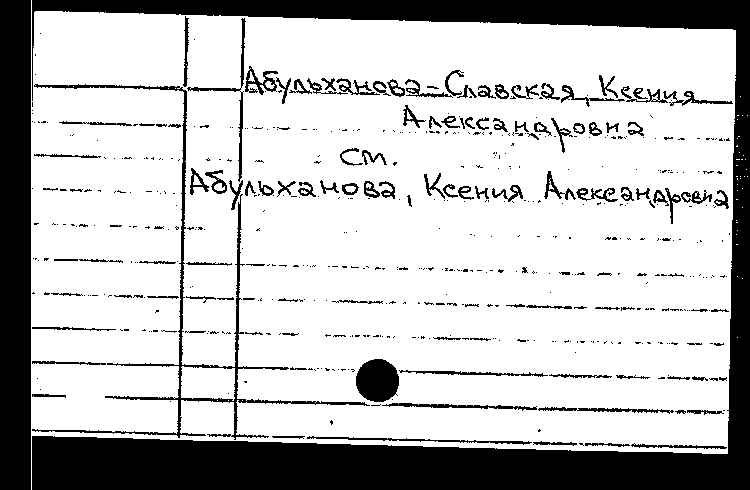 Абульханова-Славская, Ксения
Александровна
см.
Абульханова, Ксения Александровна